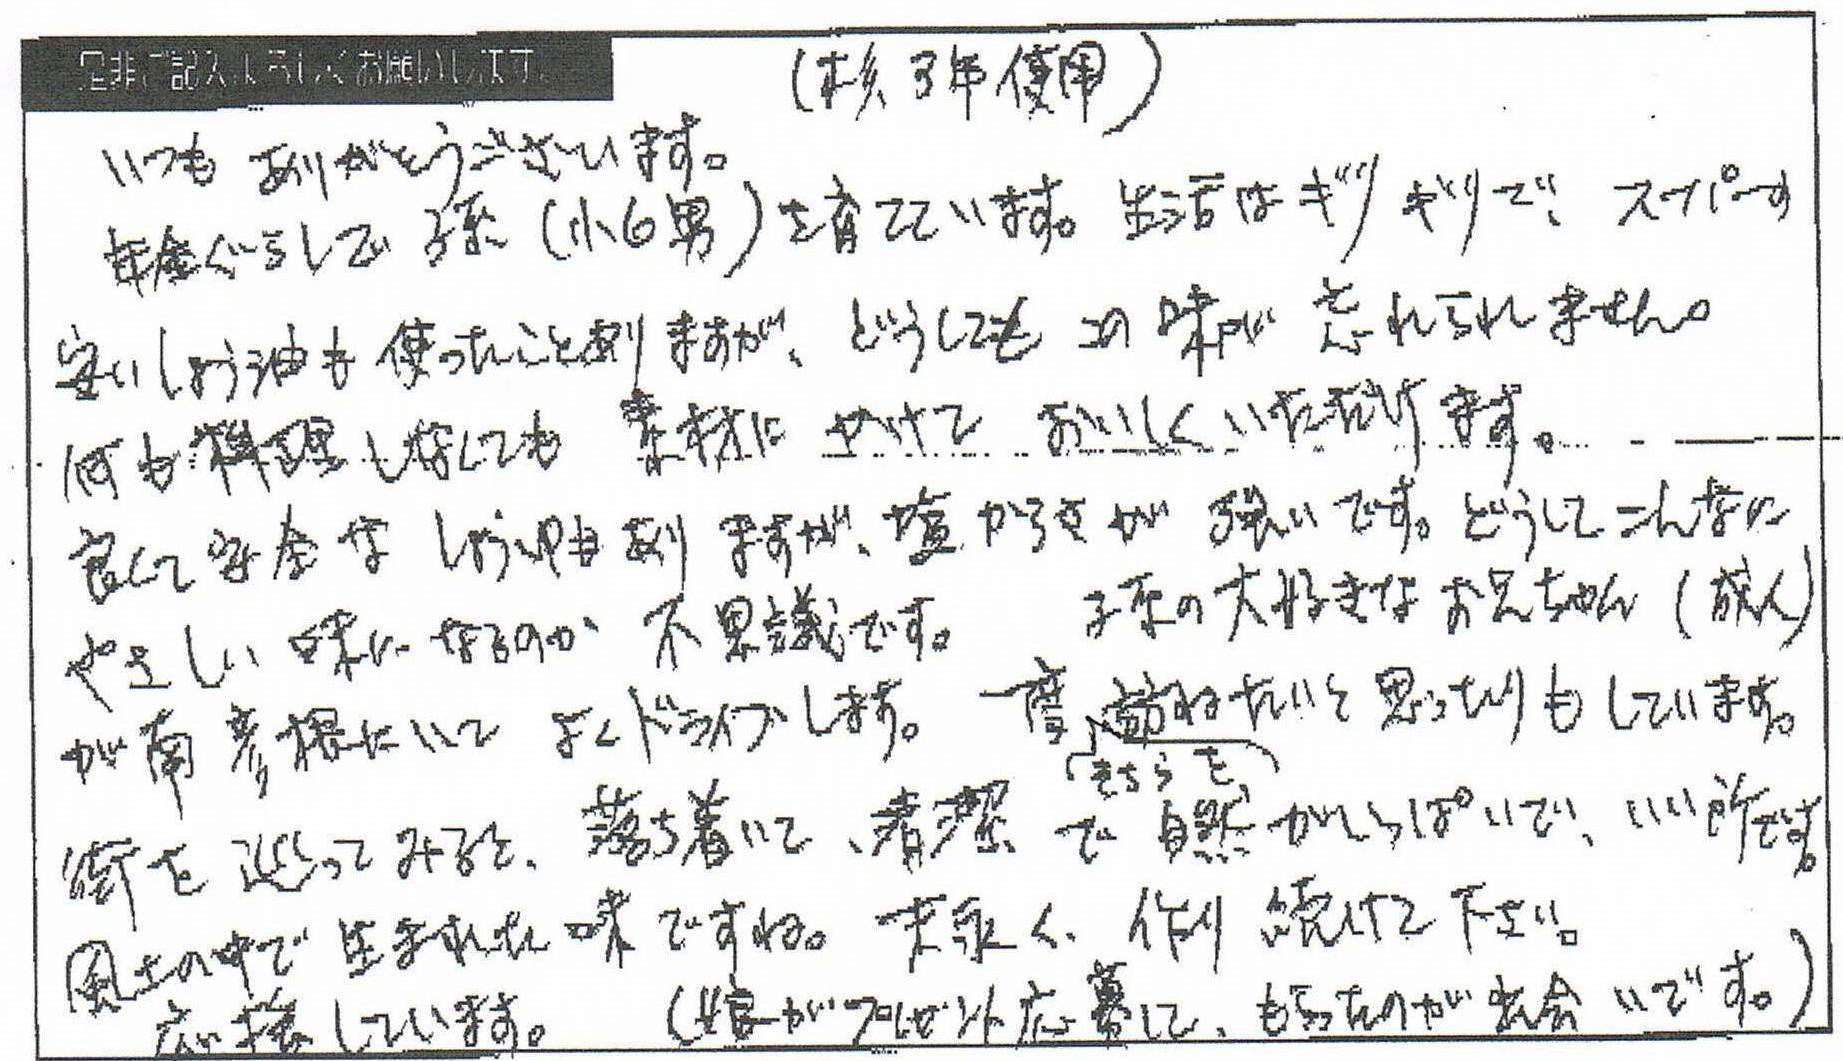 是非ご記入よろしくお願いします。
(約3年使用)
いつも ありがとうございます。
年金ぐらしで 孫(小6男)を育てています。生活はギリギリで、スーパーの
安いしょう油も 使ったことありますが、どうしても この味が 忘れられません。
何も料理しなくても 素材に かけて おいしくいただけます。
良くて安全な しょうゆもありますが、塩からさが 強いです。どうしてこんなに
やさしい味に なるのか 不思議です。 孫の大好きなお兄ちゃん(成人)
が南彦根にいて よくドライブします。一度、訪ねたいと思ったりもしています。
(そちらを)
街を巡ってみると、落ち着いて、清潔で自然がいっぱいで、いい所です。
風土の中で 生まれた味ですね。末永く、作り続けて下さい。
応援しています。 (娘がプレゼント応募して、もらったのが出会いです。)